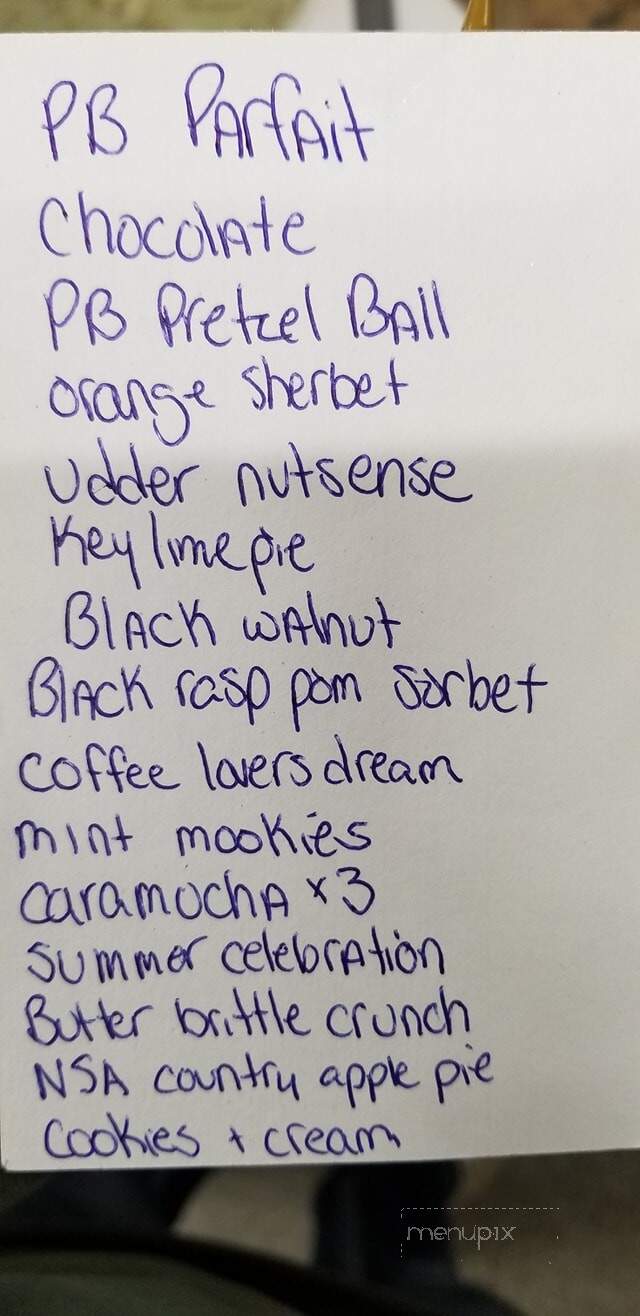 PB PArfAit
ChocolAte
PB Pretzel BAll
orange sherbet
Udder nutsense
Key lime pie
BlAcK wAlnut
BlAcK rasp pom sorbet
coffee lovers dream
mint mookies
caramochA x3
summer celebrAtion
Butter brittle crunch
NSA country apple pie
Cookies + cream
menupix